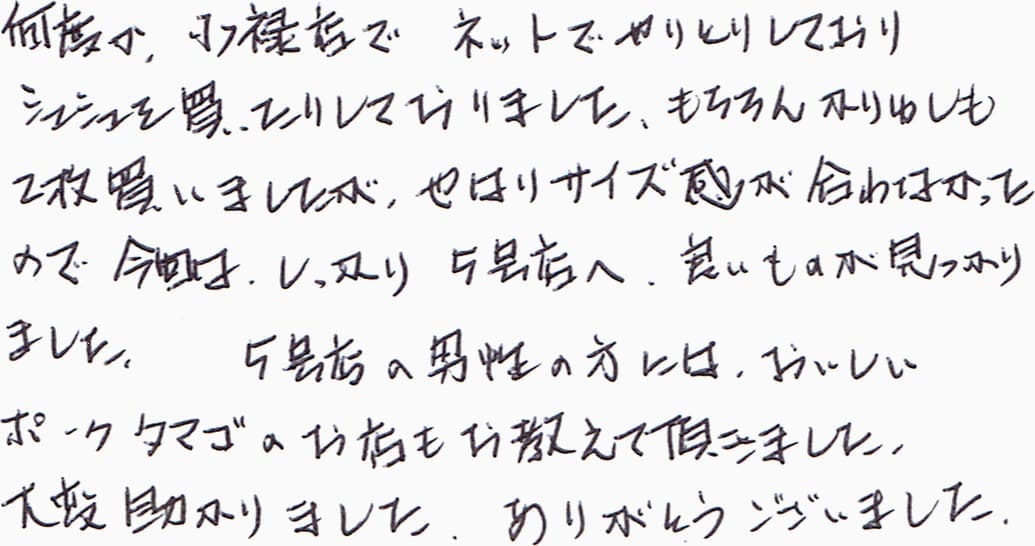 何度か、功禄店で ネットでやりとりしており
シュシュを買ったりしておりました、もちろんかりゆしも
2枚買いましたが、やはりサイズ感が合わなかった
ので今回は、しっかり 5号店へ、良いものが見つかり
ました、 5号店の男性の方には、おいしい
ポークタマゴのお店もお教えて頂きました、
大変助かりました、 ありがとうございました、